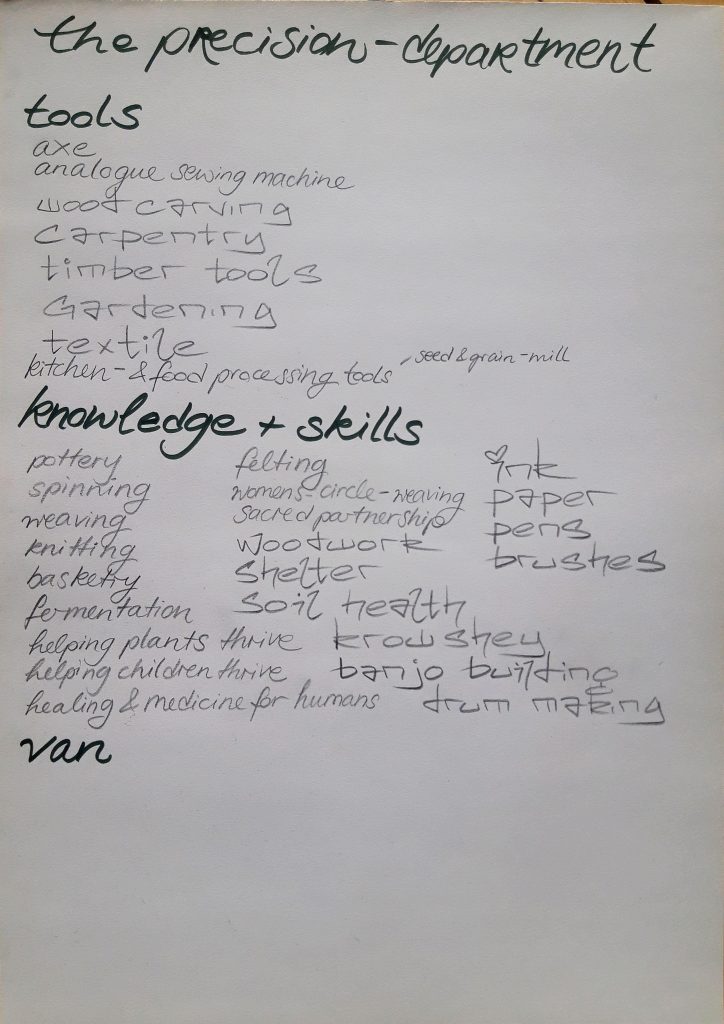 the precision-department
tools
axe
analogue sewing machine
wood carving
carpentry
timber tools
Gardening
textile
kitchen- & food processing tools - seed & grain-mill
knowledge + skills
pottery
spinning
weaving
knitting
basketry
fermentation
helping plants thrive
helping children thrive
healing & medicine for humans
felting
womens-circle-weaving
sacred partnership
woodwork
shelter
soil health
krowshey
banjo building
drum making
ink
paper
pens
brushes
van